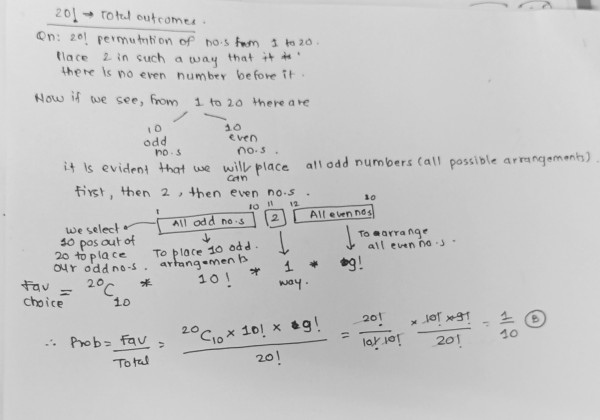 20! → Total outcomes.
Qn: 20! permutation of no.s from 1 to 20.
Place 2 in such a way that it
there is no even number before it.
Now if we see, from 1 to 20 there are
10 odd no.s 10 even no.s.
it is evident that we will place all odd numbers (all possible arrangements)
can
first, then 2, then even no.s.
1 10 11 12 20
All odd no.s 2 All even nos
we select 10 pos out of 20 to place our odd no.s.
To place 10 odd. arrangements
To arrange all even no.s.
Fav choice = 20C10 * 10! * 1 way. * 9!
∴ Prob = Fav/Total = 20C10 × 10! × 9! / 20! = 20!/10! 10! × 10! × 9!/20! = 1/10 (B)